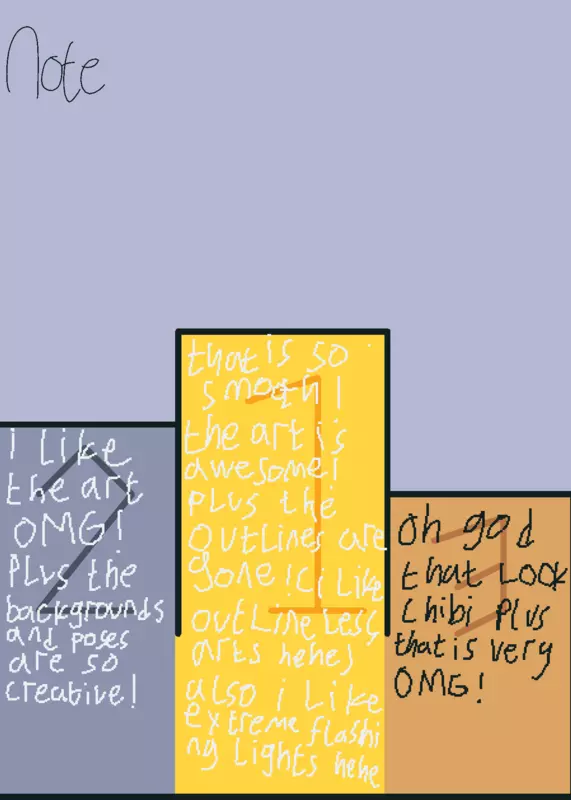 Note
2
i like
the art
OMG!
PLUS the
backgrounds
and poses
are so
creative!
1
that is so
smoth!
the art is
awesome!
PLUS the
outlines are
gone!(i like
outlineless
arts hehe)
also i like
extreme flashi
ng lights hehe
3
oh god
that look
chibi plus
that is very
OMG!